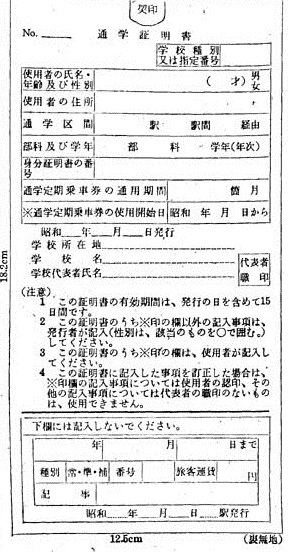 契印
No. 通学証明書
学校種別
又は指定番号
使用者の氏名・
年齢及び性別
( 才) 男
女
使用者の住所
通学区間 駅 駅間 経由
部科及び学年 部 科 学年(年次)
身分証明書の番
号
通学定期乗車券の通用期間 箇月
※通学定期乗車券の使用開始日 昭和 年 月 日から
昭和 年 月 日発行
学校所在地
学校名
学校代表者氏名
代表者
職印
(注意)
1 この証明書の有効期間は、発行の日を含めて15
日間です。
2 この証明書のうち※印の欄以外の記入事項は、
発行者が記入(性別は、該当のものを○で囲む。)
してください。
3 この証明書のうち※印の欄は、使用者が記入し
てください。
4 この証明書に記入した事項を訂正した場合は、
※印欄の記入事項については使用者の認印、その
他の記入事項については代表者の職印のないもの
は、使用できません。
下欄には記入しないでください。
年 月 日まで
種別 常・準・補 番号 旅客運賃 円
記事
昭和 年 月 日 駅発行
18.2cm
12.5cm
(裏無地)